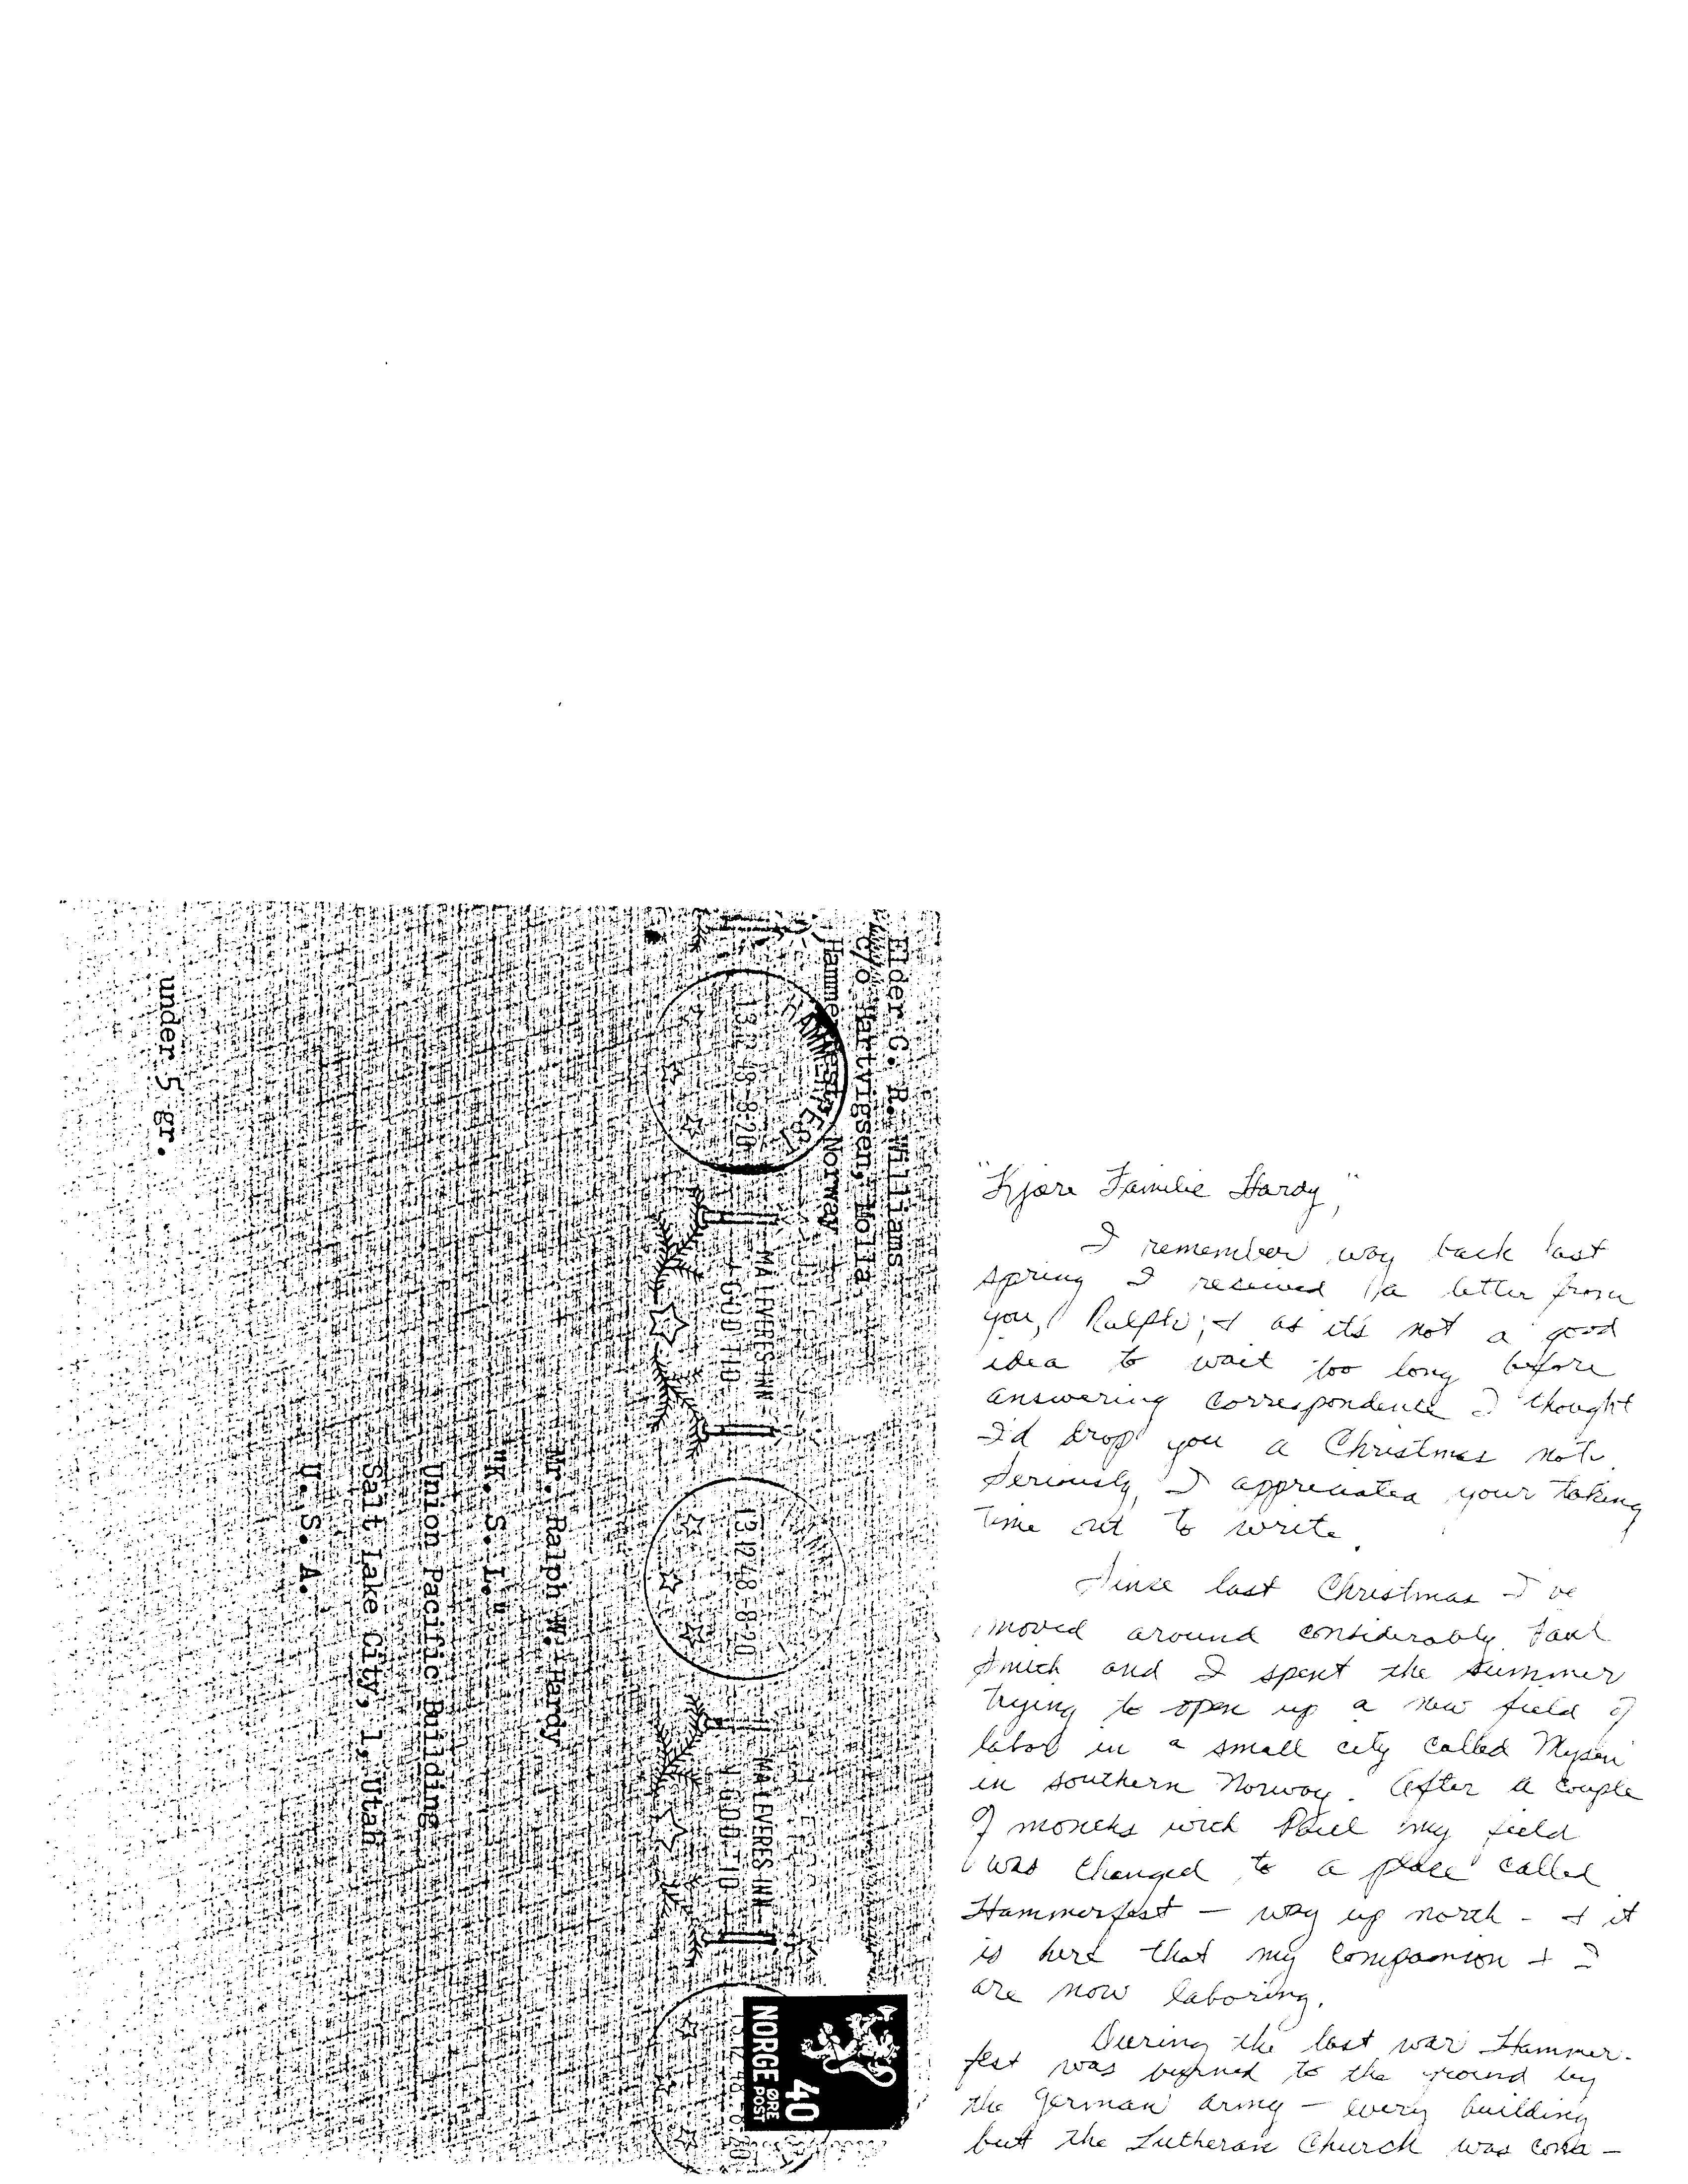 Elder C. R. Williams
c/o Hartvigsen, Molla
Hammerfest, Norway
HAMMERFEST
13.12.48-8.20
MÅ LEVERES INN
I GOD TID
13.12.48-8.20
MÅ LEVERES INN
I GOD TID
NORGE
POST
40
ØRE
Mr. Ralph W. Hardy
"K. S. L."
Union Pacific Building
Salt Lake City, 1, Utah
U. S. A.
under 5 gr.
"Kjære Familie Hardy,"
I remember way back last
spring I received a letter from
you, Ralph; & as it's not a good
idea to wait too long before
answering correspondence I thought
I'd drop you a Christmas note.
Seriously, I appreciated your taking
time out to write.
Since last Christmas I've
moved around considerably. Paul
Smith and I spent the summer
trying to open up a new field of
labor in a small city called Mysen
in southern Norway. After a couple
of months with Paul my field
was changed to a place called
Hammerfest — way up north - & it
is here that my companion & I
are now laboring.
During the last war Hammer-
fest was burned to the ground by
the German army — every building
but the Lutheran Church was